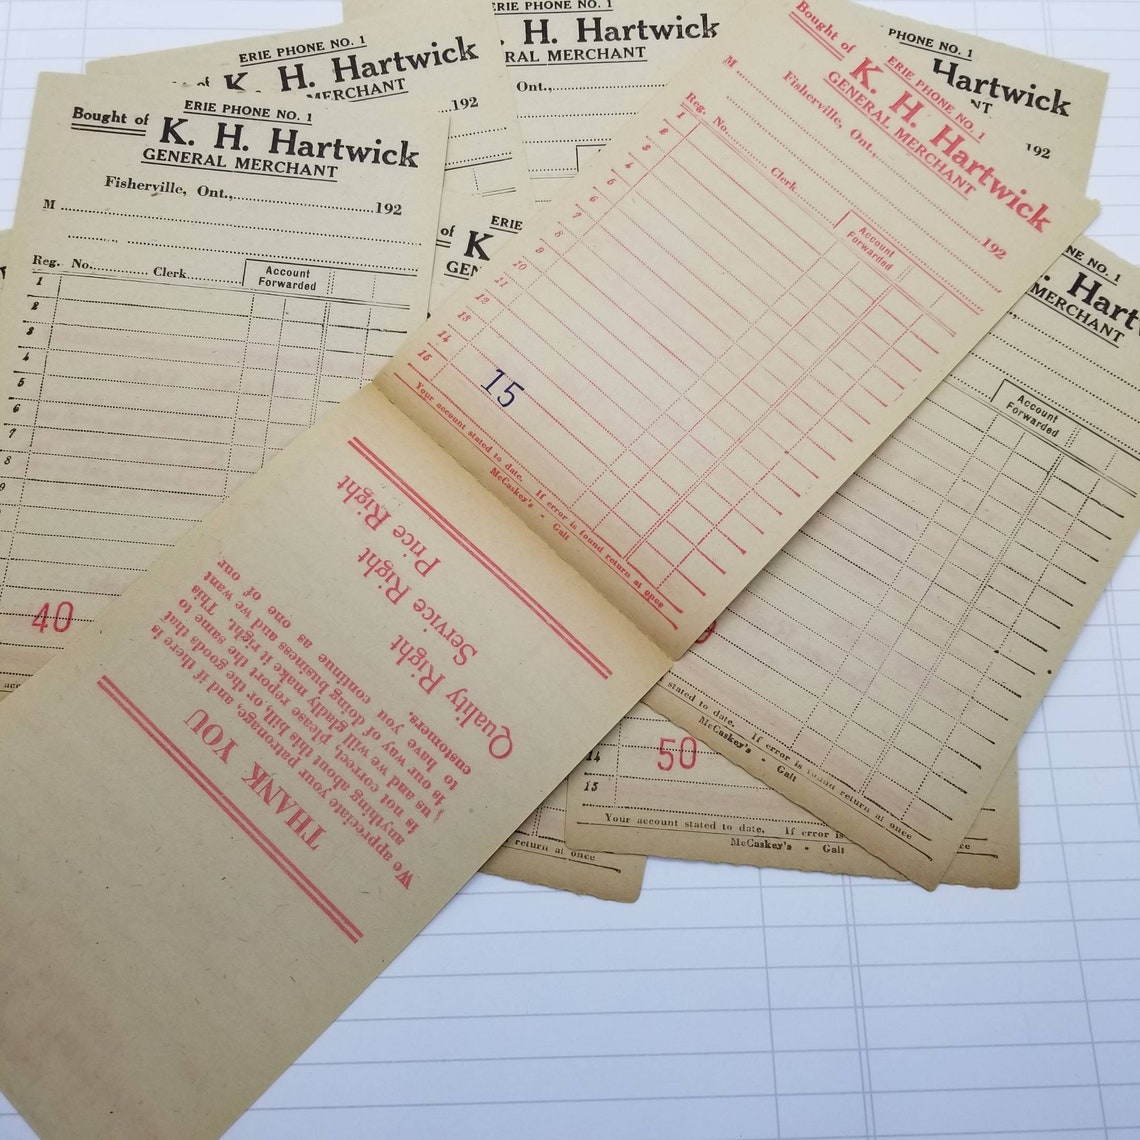 ERIE PHONE NO. 1
Bought of K. H. Hartwick
GENERAL MERCHANT
Fisherville, Ont., 192
M
Reg. No. Clerk
Account Forwarded
1
2
3
4
5
6
7
8
9
40
ERIE PHONE NO. 1
of K. H. Hartwick
MERCHANT
192
ERIE PHONE NO. 1
H. Hartwick
RAL MERCHANT
Ont.,
PHONE NO. 1
Hartwick
NT
192
ERIE
of K.
GEN
ERIE PHONE NO. 1
Bought of K. H. Hartwick
GENERAL MERCHANT
Fisherville, Ont., 192
M
Reg. No. Clerk
Account Forwarded
1
2
3
4
5
6
7
8
9
10
11
12
13
14
15
15
Your account stated to date. If error is found return at once
McCaskey's - Galt
THANK YOU
We appreciate your patronage, and if there is
anything about this bill, or the goods that
is not correct, please report the same to
us and we will gladly make it right. This
is our way of doing business and we want
to have you continue as one of our
customers.
Quality Right
Service Right
Price Right
NE NO. 1
. Hart
MERCHANT
Account Forwarded
stated to date. If error is found return at once
McCaskey's - Galt
14
50
15
Your account stated to date. If error is
McCaskey's - Galt
return at once